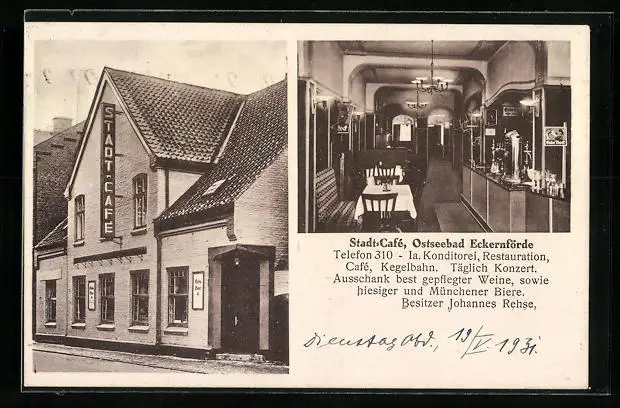 STADT-CAFÉ
Stadt-Café, Ostseebad Eckernförde
Telefon 310 - Ia. Konditorei, Restauration,
Café, Kegelbahn. Täglich Konzert.
Ausschank best gepflegter Weine, sowie
hiesiger und Münchener Biere.
Besitzer Johannes Rehse,
Dienstag Abd., 19/V. 1931.